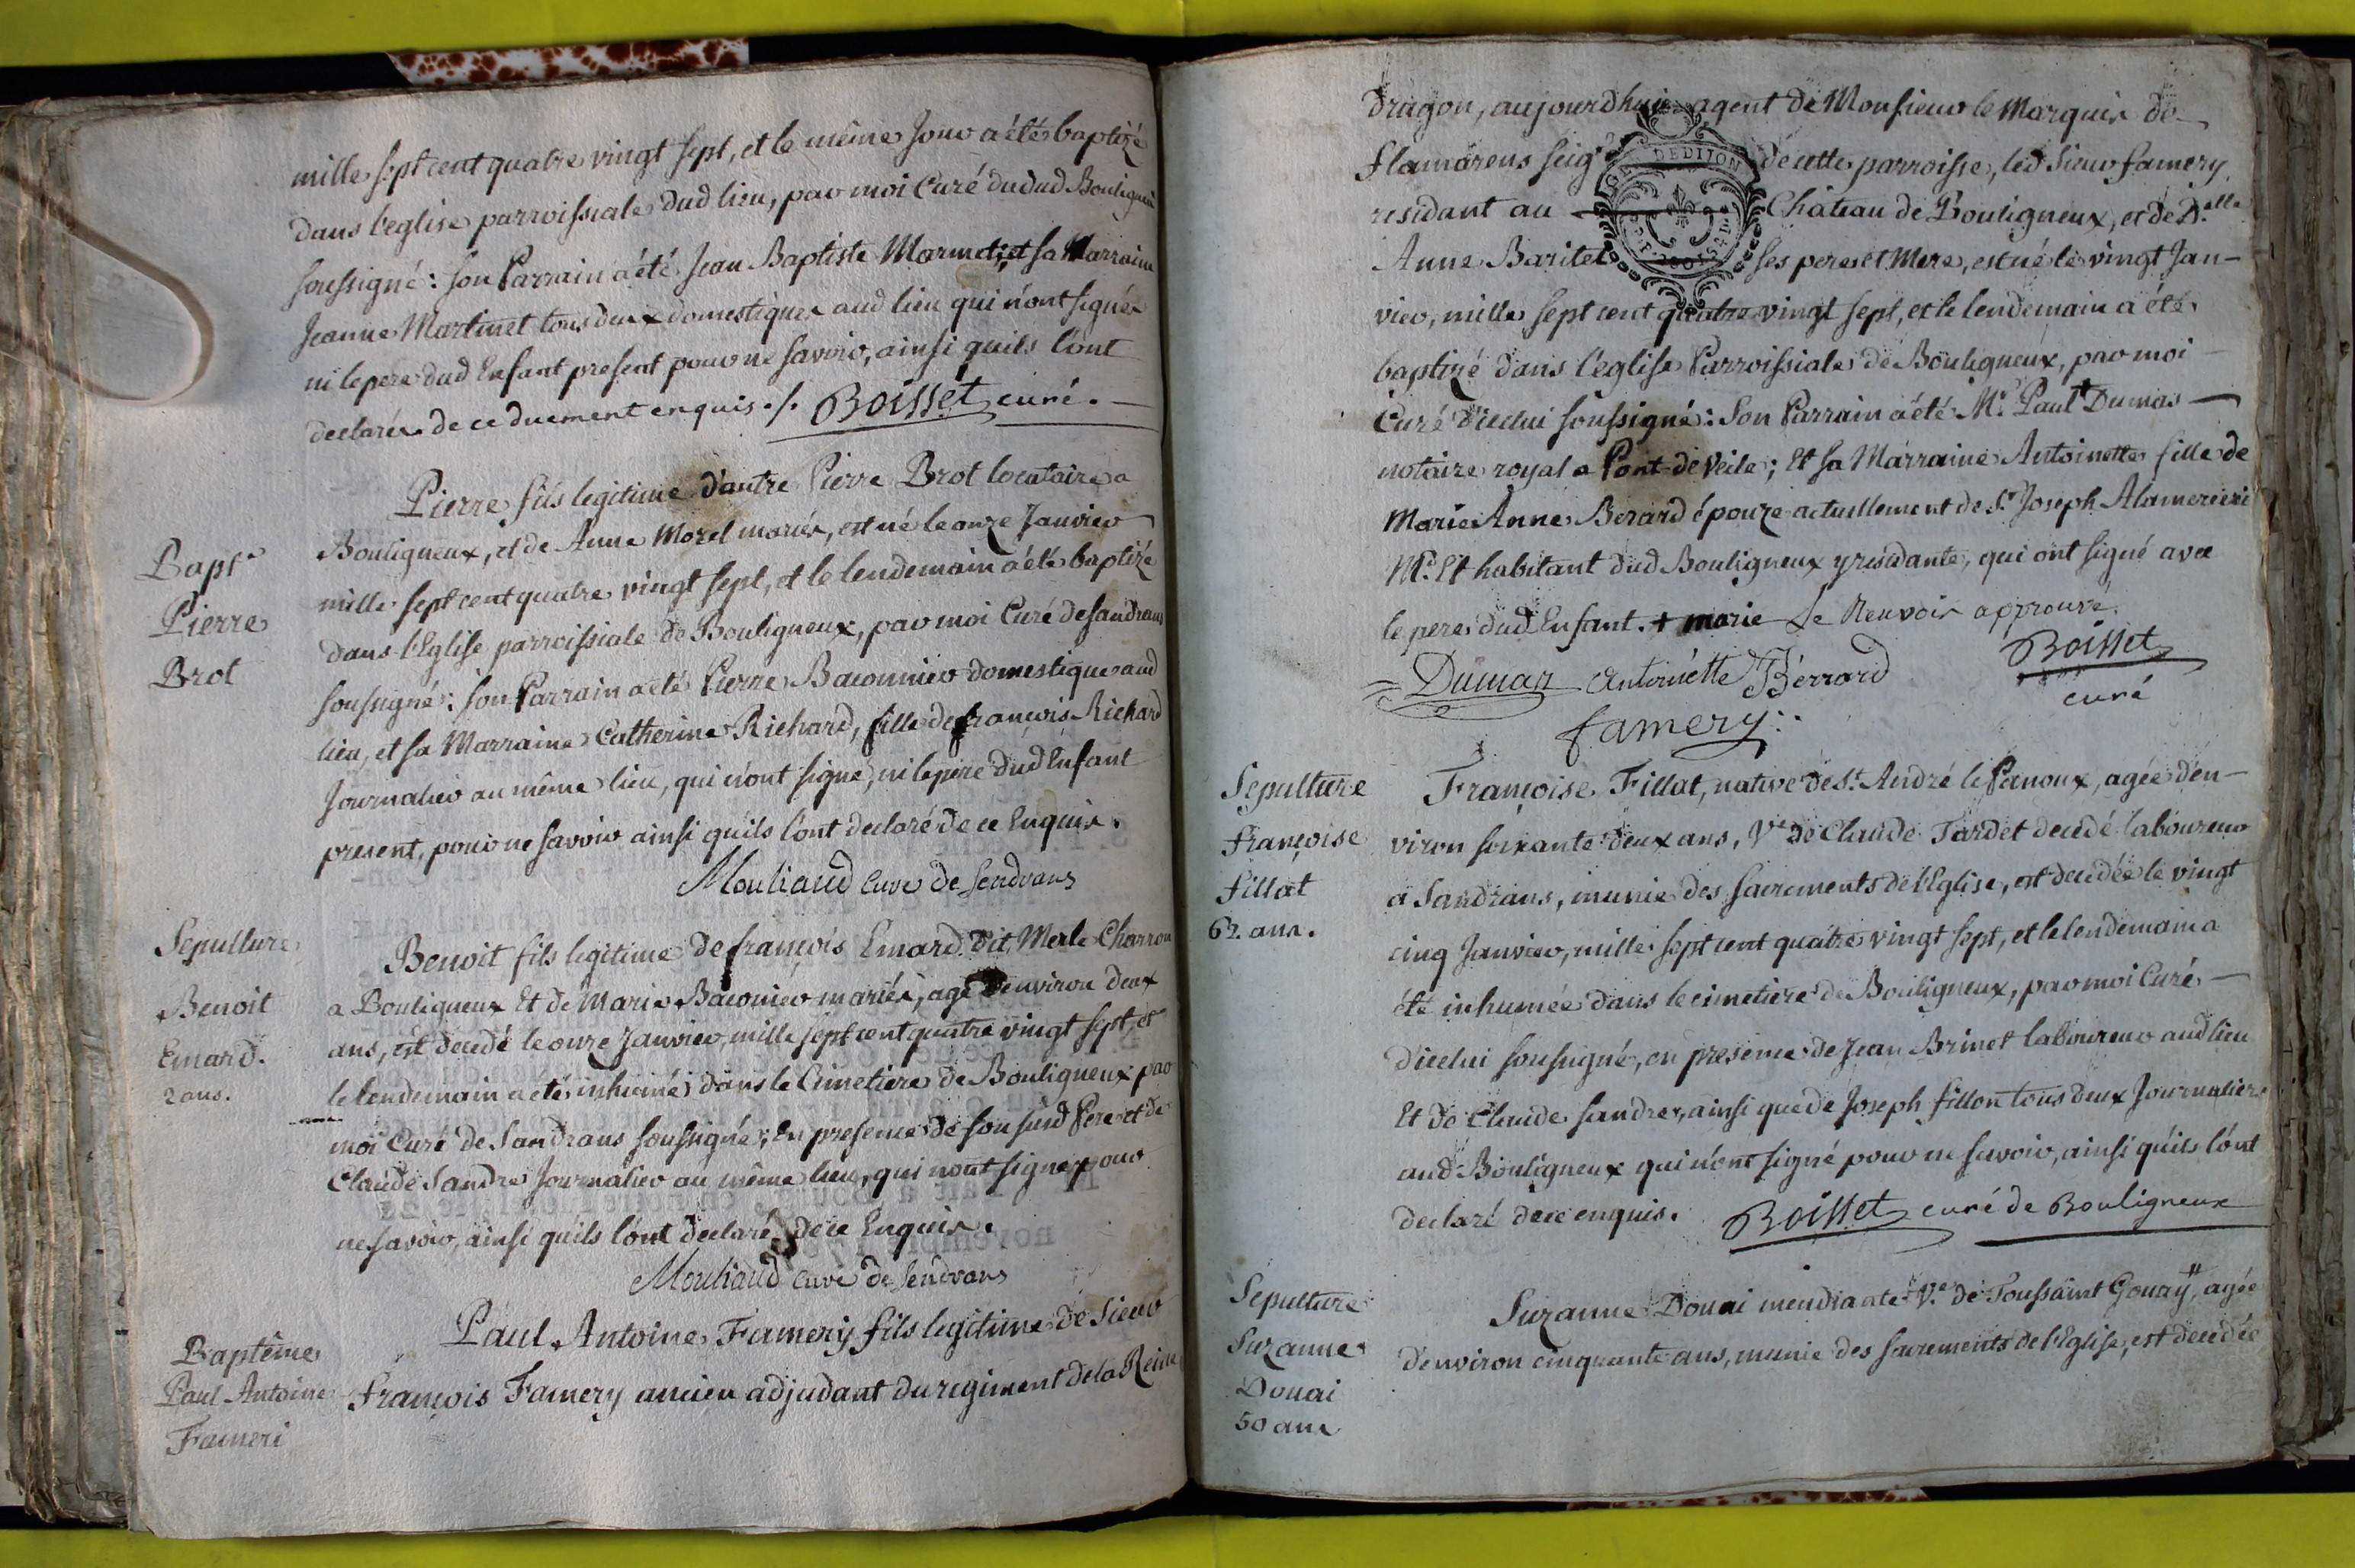 mille sept cent quatre vingt sept, et le même jour a été baptizé
dans l'eglise parroissiale dud lieu, par moi Curé dudud Bouligneux
soussigné: son Parrain a été Jean Baptiste Marmet; et sa Marraine
Jeanne Martinet tous deux domestiques aud lieu qui n'ont signés
ni le pere dud Enfant present pour ne savoir, ainsi quils l'ont
declarés de ce duement enquis ./. Boisset curé.
Bapt.e
Pierre
Brot
Pierre fils legitime d'autre Pierre Brot locataire a
Bouligneux, et de Anne Morel mariés, est né le onze Janvier
mille sept cent quatre vingt sept, et le lendemain a été baptizé
dans l'Eglise parroissiale de Bouligneux, par moi Curé de Sandrans
soussigné: son Parrain a eté Pierre Baconnier domestique aud
lieu, et sa Marraine Catherine Richard, fille de françois Richard
Journalier au même lieu, qui n'ont signé, ni le pere dud Enfant
present, pour ne savoir ainsi quils l'ont declaré de ce Enquis.
Mouliaud curé de Sendrans
Sepulture
Benoit
Emard.
2 ans.
Benoit fils legitime de françois Emard dit Merle Charron
a Bouligneux Et de Marie Baconier mariés, agé d'environ deux
ans, est decedé le onze Janvier, mille sept cent quatre vingt sept, et
le lendemain a eté inhumé dans le Cimetiere de Bouligneux par
moi Curé de Sandrans soussigné, en presence de son susd Pere et de
Claude Sandre Journalier au même lieu, qui n'ont signe pour
ne savoir, ainsi qu'ils l'ont declaré de ce Enquis.
Mouliaud curé de Sendrans
Baptême
Paul Antoine
Fameri
Paul Antoine Famery fils legitime de Sieur
françois Famery ancien adjudant du regiment de la Reine
Dragon, aujourdhuie agent de Monsieur le Marquis de
flamarens seigr de cette parroisse, led Sieur famery
residant au Château de Bouligneux, et de D.elle
Anne Baritel ses pere et Mere, est né le vingt Jan-
vier, mille sept cent quatre vingt sept, et le lendemain a été
baptizé dans l'église Parroissiale de Bouligneux, par moi
Curé d'icelui soussigné: Son Parrain a été Mr. Paul + Dumas
notaire royal a Pont-de-Veile; Et sa Marraine Antoinette fille de
Marie Anne Berard épouze actuellement de Sr. Joseph Alamercerie
Md. Et habitant dud Bouligneux y residante, qui ont signé avec
le pere dud Enfant. + marie Le Renvoir approuvé.
Dumas Antoinétte Bérrard Boisset
curé
famery
Sepulture
françoise
fillat
62. ans.
Françoise Fillat, native de St. André le Panoux, agée d'en-
viron soixante deux ans, Ve de Claude Tardet decedé laboureur
a Sandrans, munie des sacrements de l'Eglise, est decedée le vingt
cinq Janvier, mille sept cent quatre vingt sept, et le lendemain a
été inhumée dans le cimetiere de Bouligneux, par moi Curé
d'icelui soussigné, en presence de Jean Brinet laboureur aud lieu
Et de Claude Sandre, ainsi que de Joseph fillon tous deux Journaliers
aud Bouligneux qui n'ont signé pour ne savoir, ainsi qu'ils l'ont
declaré de ce enquis. Boisset curé de Bouligneux
Sepulture
Suzanne
Douai
50 ans
Suzanne Douai mendiante V.e de Toussaint Gonay, agée
d'environ cinquante ans, munie des sacrements de l'Eglise, est decedée